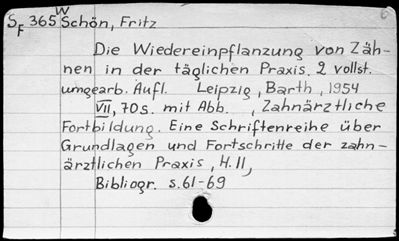 W
S_F 365 Schön, Fritz
Die Wiedereinpflanzung von Zäh-
nen in der täglichen Praxis. 2 vollst.
umgearb. Aufl. Leipzig, Barth, 1954
VII, 70s. mit Abb. , Zahnärztliche
Fortbildung. Eine Schriftenreihe über
Grundlagen und Fortschritte der zahn-
ärztlichen Praxis, H.11,
Bibliogr. s.61-69